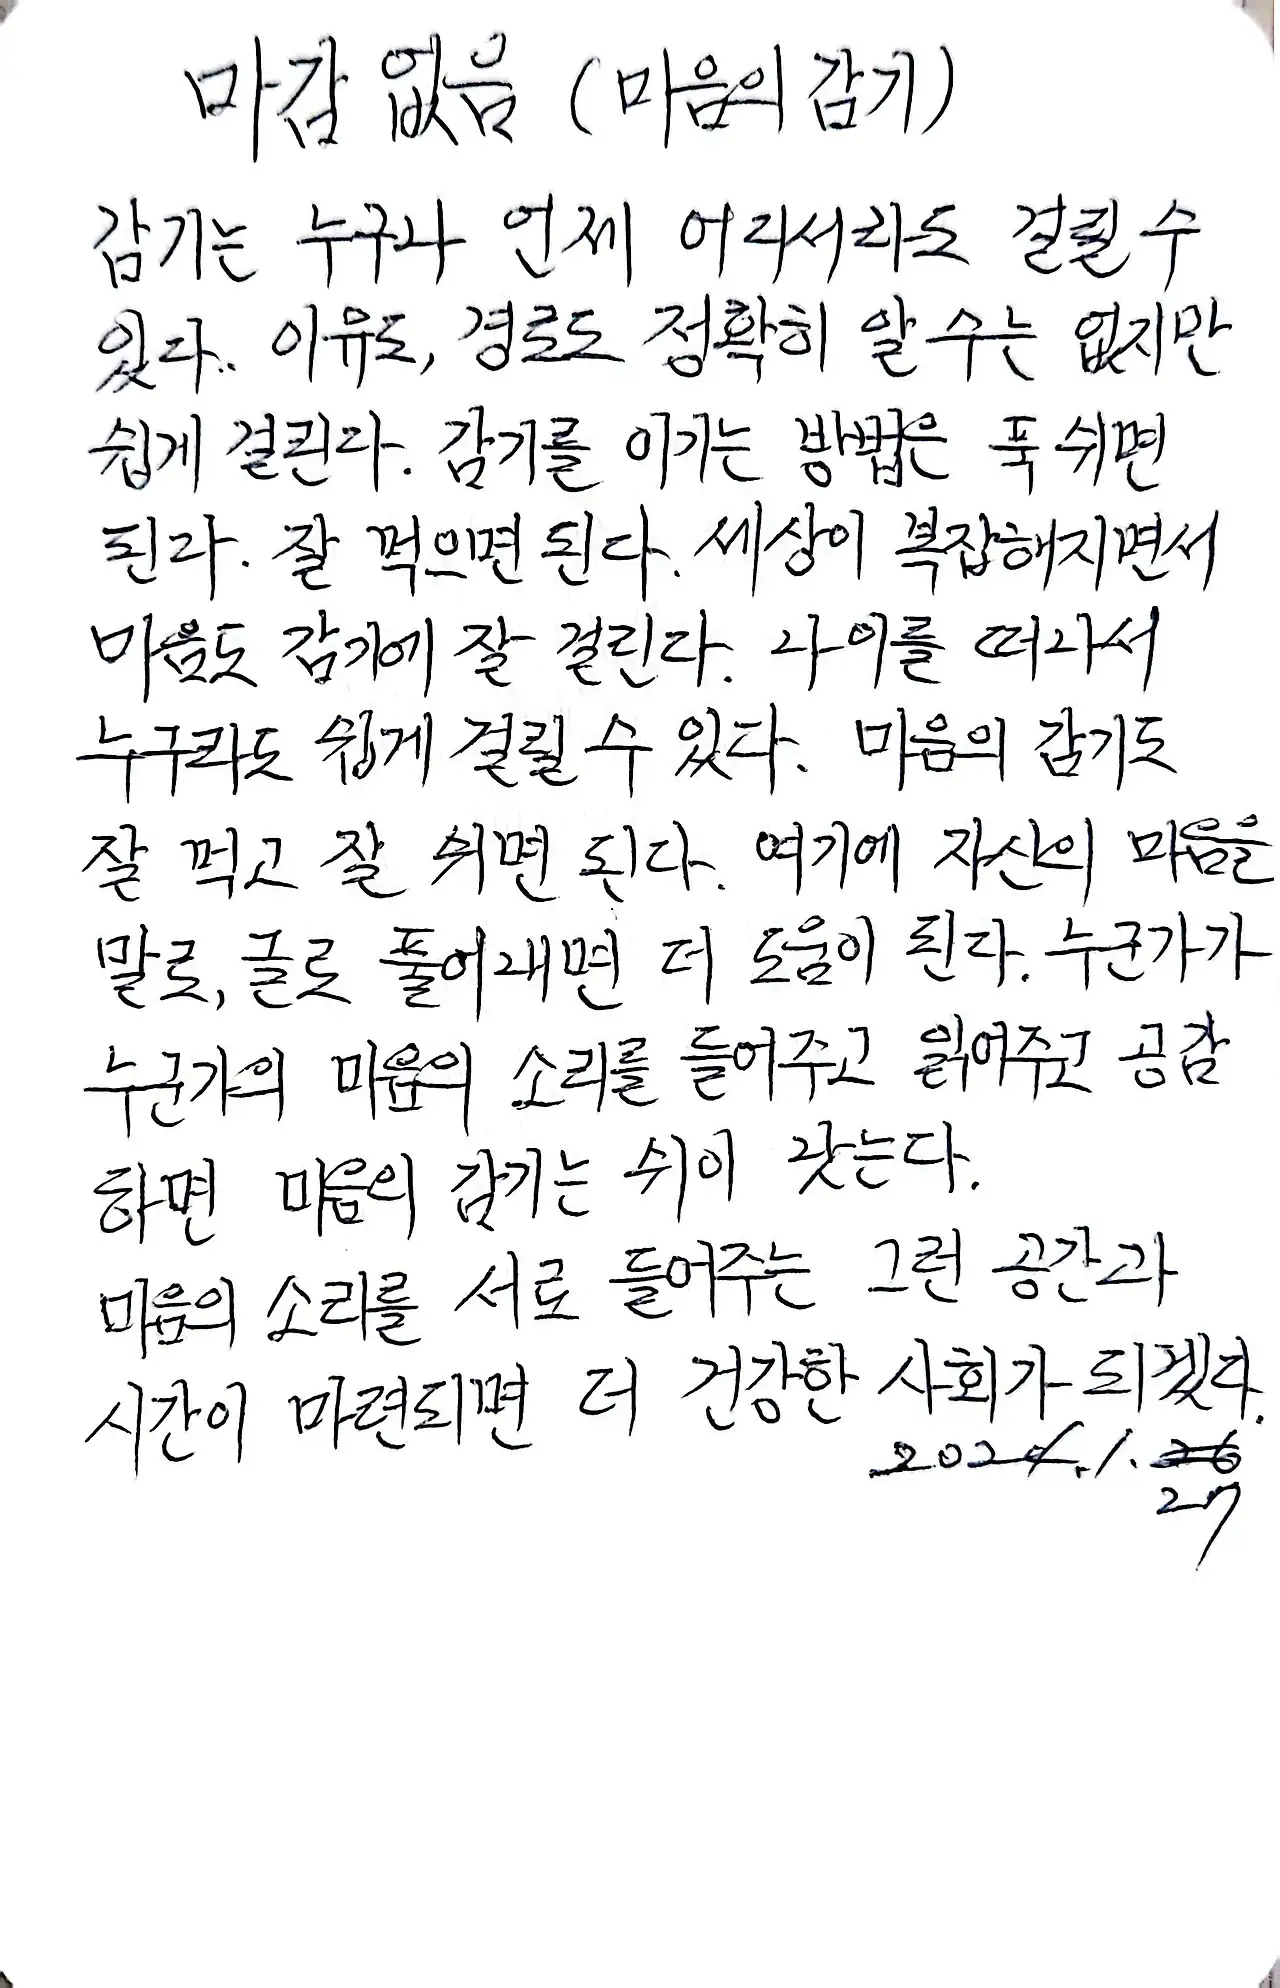 마감 없음 (마음의 감기)
감기는 누구나 언제 어디서라도 걸릴 수
있다. 이유도, 경로도 정확히 알 수는 없지만
쉽게 걸린다. 감기를 이기는 방법은 푹 쉬면
된다. 잘 먹으면 된다. 세상이 복잡해지면서
마음도 감기에 잘 걸린다. 나이를 떠나서
누구라도 쉽게 걸릴 수 있다. 마음의 감기도
잘 먹고 잘 쉬면 된다. 여기에 자신의 마음을
말로, 글로 풀어내면 더 도움이 된다. 누군가가
누군가의 마음의 소리를 들어주고 읽어주고 공감
하면 마음의 감기는 쉬이 낫는다.
마음의 소리를 서로 들어주는 그런 공간과
시간이 마련되면 더 건강한 사회가 되겠다.
2024.1.26
27